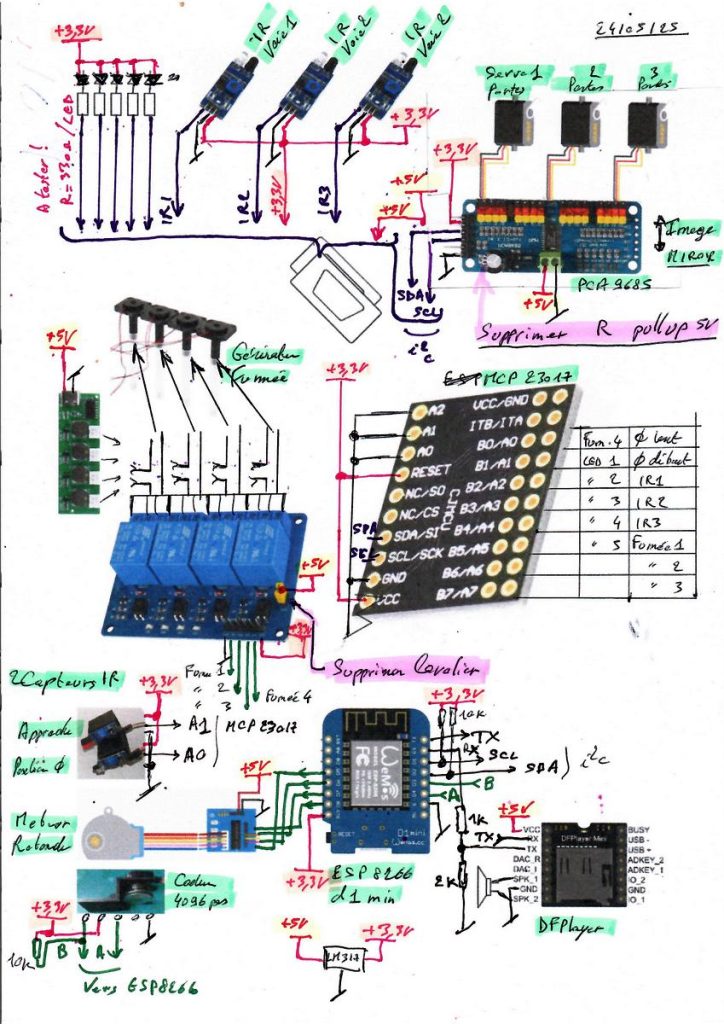 24/05/25
+3,3V
IR
Voie 1
IR
Voie 2
IR
Voie 2
Servo 1
Portes
2
Portes
3
Portes
A tester !
R = 330Ω / LED
+3,3V
+3,3V
+5V
+3,3V
+5V
IR1
IR2
IR3
SDA
SCL
i²c
+5V
PCA 9685
Image
Miroir
Supprimer R pullup 5V
+5V
Générateur
Fumée
+3,3V
MCP 23017
A2
A1
A0
RESET
NC/SO
NC/CS
SDA/SI
SCL/SCK
GND
VCC
CJMCU
VCC/GND
ITB/ITA
B0/A0
B1/A1
B2/A2
B3/A3
B4/A4
B5/A5
B6/A6
B7/A7
SDA
SCL
Fum. 4
LED 1
" 2
" 3
" 4
" 5
IR1
IR2
IR3
Fumée 1
" 2
" 3
+5V
+3,3V
Supprimer Cavalier
Fumée 1
" 2
" 3
Fumée 4
2 Capteurs IR
+3,3V
Approche
Position Ø
A1
A0
MCP 23017
+3,3V
10K
TX
RX
SCL
SDA
i²c
B
A
WeMos
RESET
D1 mini
Wemos.cc
ESP 8266
d1 mini
+3,3V
Moteur
Rotonde
+5V
Codeur
4096 pas
+3,3V
10K
B
A
Vers ESP8266
+5V
+3,3V
LM317
1K
2K
TX
+5V
VCC
RX
TX
DAC_R
DAC_I
SPK_1
GND
SPK_2
DFPlayer Mini
BUSY
USB -
USB +
ADKEY_2
ADKEY_1
IO_2
GND
IO_1
DFPlayer